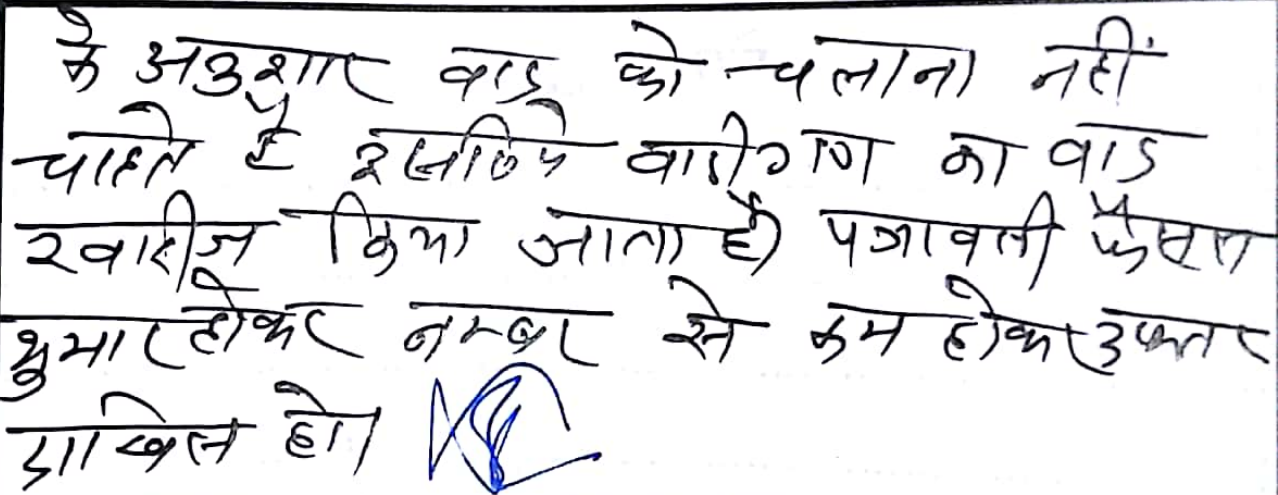 के अनुशार वाद को चलाना नहीं
चाहते है इसलिये वादीगण का वाद
खारीज किया जाता है पत्रावली फैसल
शुमार होकर नम्बर से कम होकर दफ्तर
दाखिल हो।